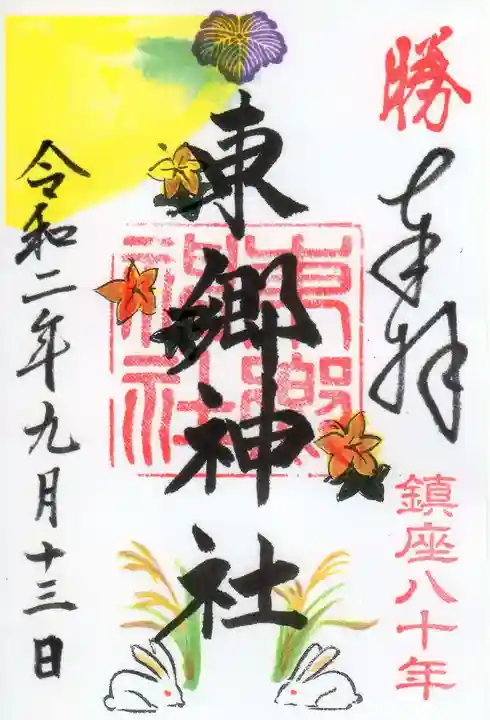 勝
奉拝
鎮座八十年
東郷神社
東郷神社
令和二年九月十三日